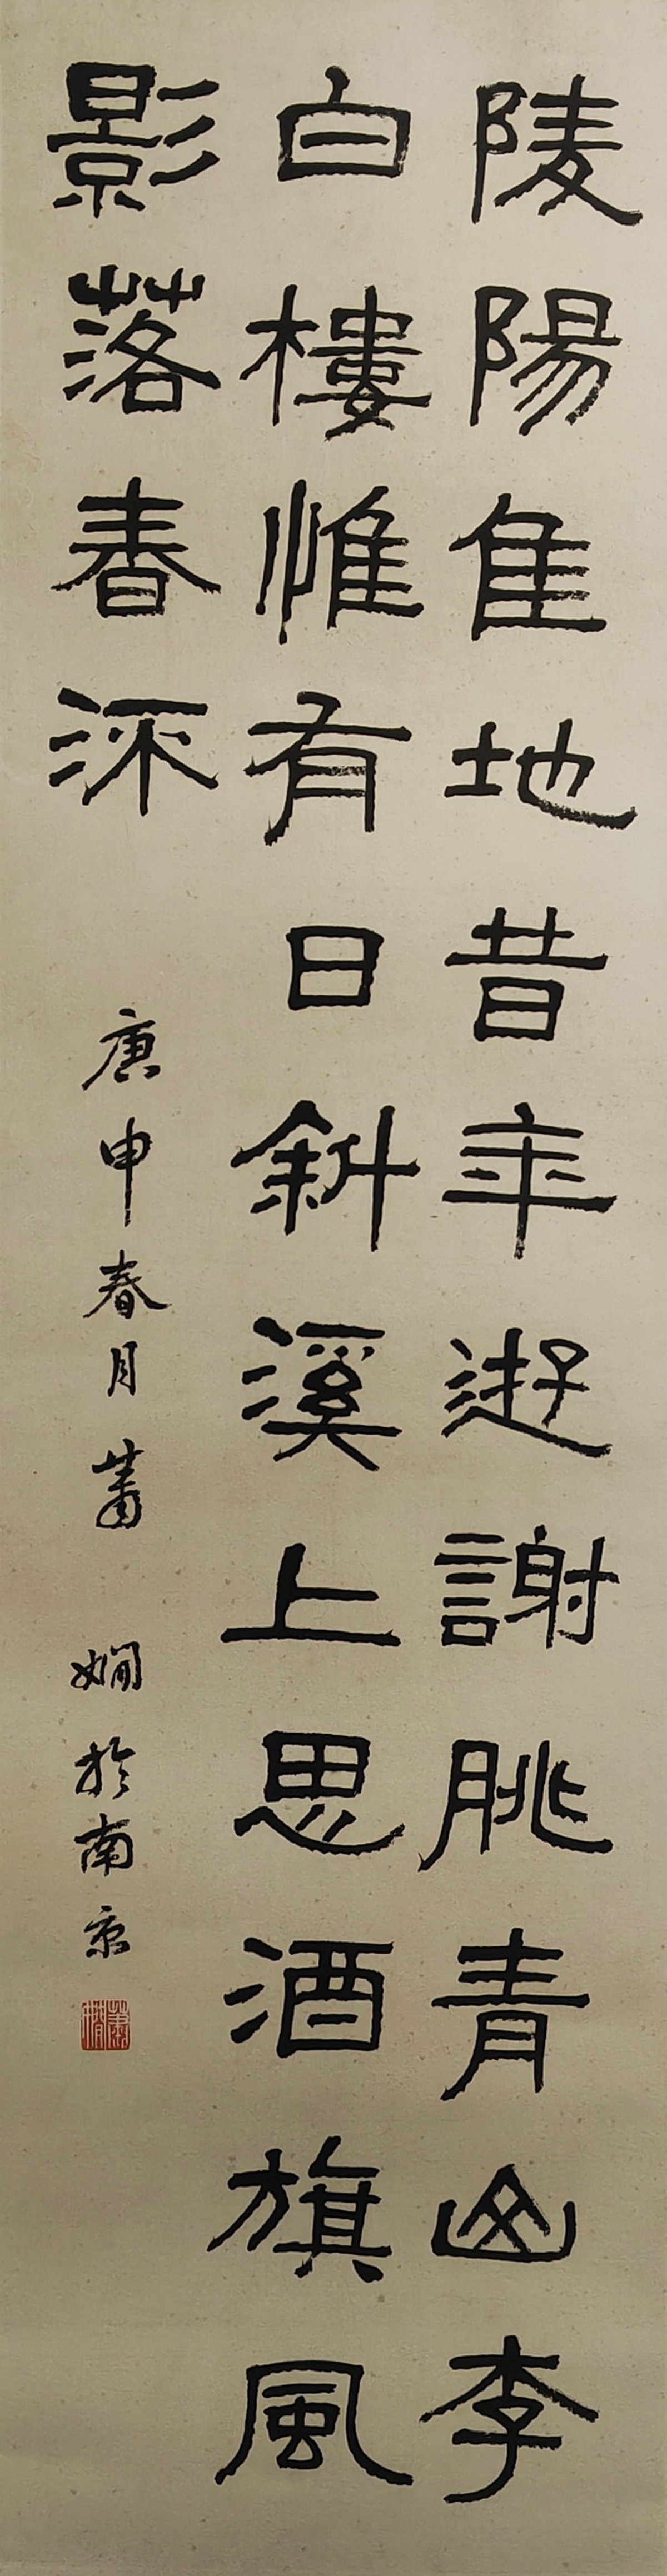 陵陽佳地昔年遊謝朓青山李
白樓惟有日斜溪上思酒旗風
影落春流 庚申春月蕭嫻於南京
蕭嫻